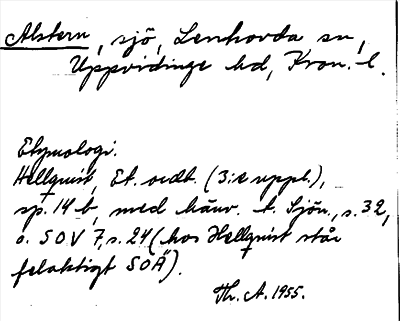 Alstern, sjö, Lenhovda sn,
Uppvidinge hd, Kron. l.
Etymologi.
Hellquist, Et. ordb. (3:e uppl.),
sp. 14 b, med hänv. t. Sjön., s. 32,
o. SOV 7, s. 24 (hos Hellquist står
felaktigt SOÄ).
Th. A. 1955.